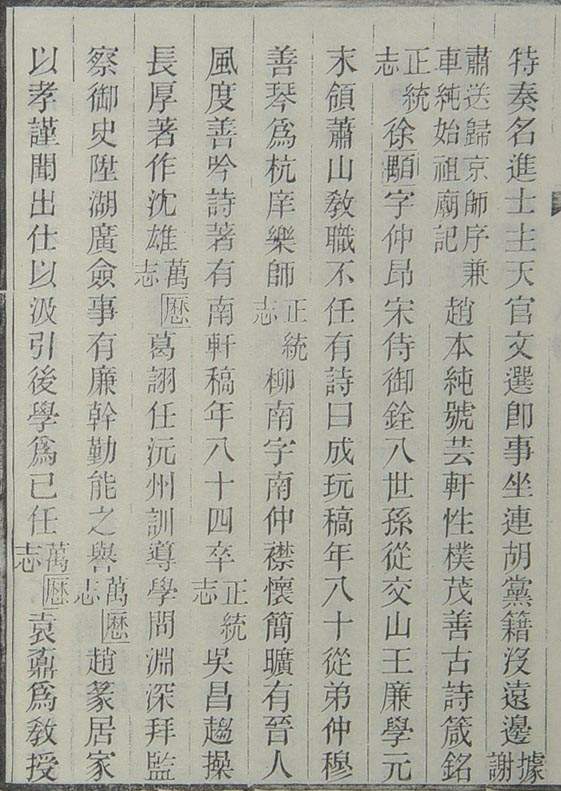 特奏名進士主天官文選郎事坐連胡黨籍沒遠邊據謝
肅送歸京師序兼車純始祖廟記趙本純號芸軒性樸茂善古詩箴銘
正統志徐顒字仲昂宋侍御銓八世孫從交山王廉學元
末領蕭山教職不任有詩曰成玩稿年八十從弟仲穆
善琴為杭庠樂師正統志柳南字南仲襟懷簡曠有晉人
風度善吟詩著有南軒稿年八十四卒正統志吳昌趨操
長厚著作沈雄萬曆志葛詡任沅州訓導學問淵深拜監
察御史陞湖廣僉事有廉幹勤能之譽萬曆志趙篆居家
以孝謹聞出仕以汲引後學為己任萬曆志袁鼐為教授